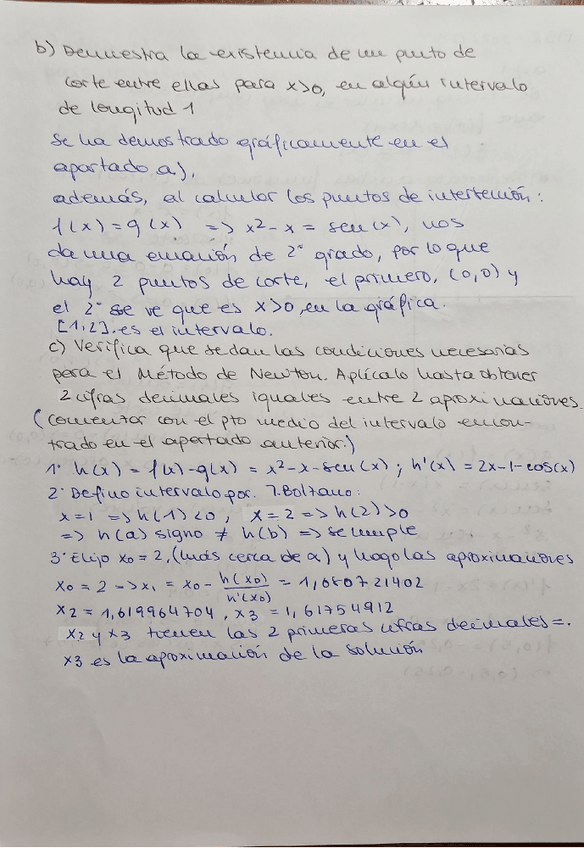 b) Demuestra la existencia de un punto de
corte entre ellas para x>0, en algún intervalo
de longitud 1
Se ha demostrado gráficamente en el
apartado a),
además, al calcular los puntos de intersección:
f(x) = g(x) => x² - x = sen(x), nos
da una ecuación de 2º grado, por lo que
hay 2 puntos de corte, el primero, (0,0) y
el 2º se ve que es x>0, en la gráfica.
[1,2]. es el intervalo.
c) Verifica que se dan las condiciones necesarias
para el Método de Newton. Aplícalo hasta obtener
2 cifras decimales iguales entre 2 aproximaciones
(comentar con el pto medio del intervalo encon-
trado en el apartado anterior.)
1º h(x) = f(x) - g(x) = x² - x - sen(x) ; h'(x) = 2x - 1 - cos(x)
2º Defino intervalo por. T.Bolzano:
x = 1 => h(1) < 0 ; x = 2 => h(2) > 0
=> h(a) signo ≠ h(b) => se cumple
3º Elijo x0 = 2, (más cerca de α) y hago las aproximaciones
x0 = 2 -> x1 = x0 - h(x0)/h'(x0) = 1,680721402
x2 = 1,619964704, x3 = 1,61754912
x2 y x3 tienen las 2 primeras cifras decimales =.
x3 es la aproximación de la solución